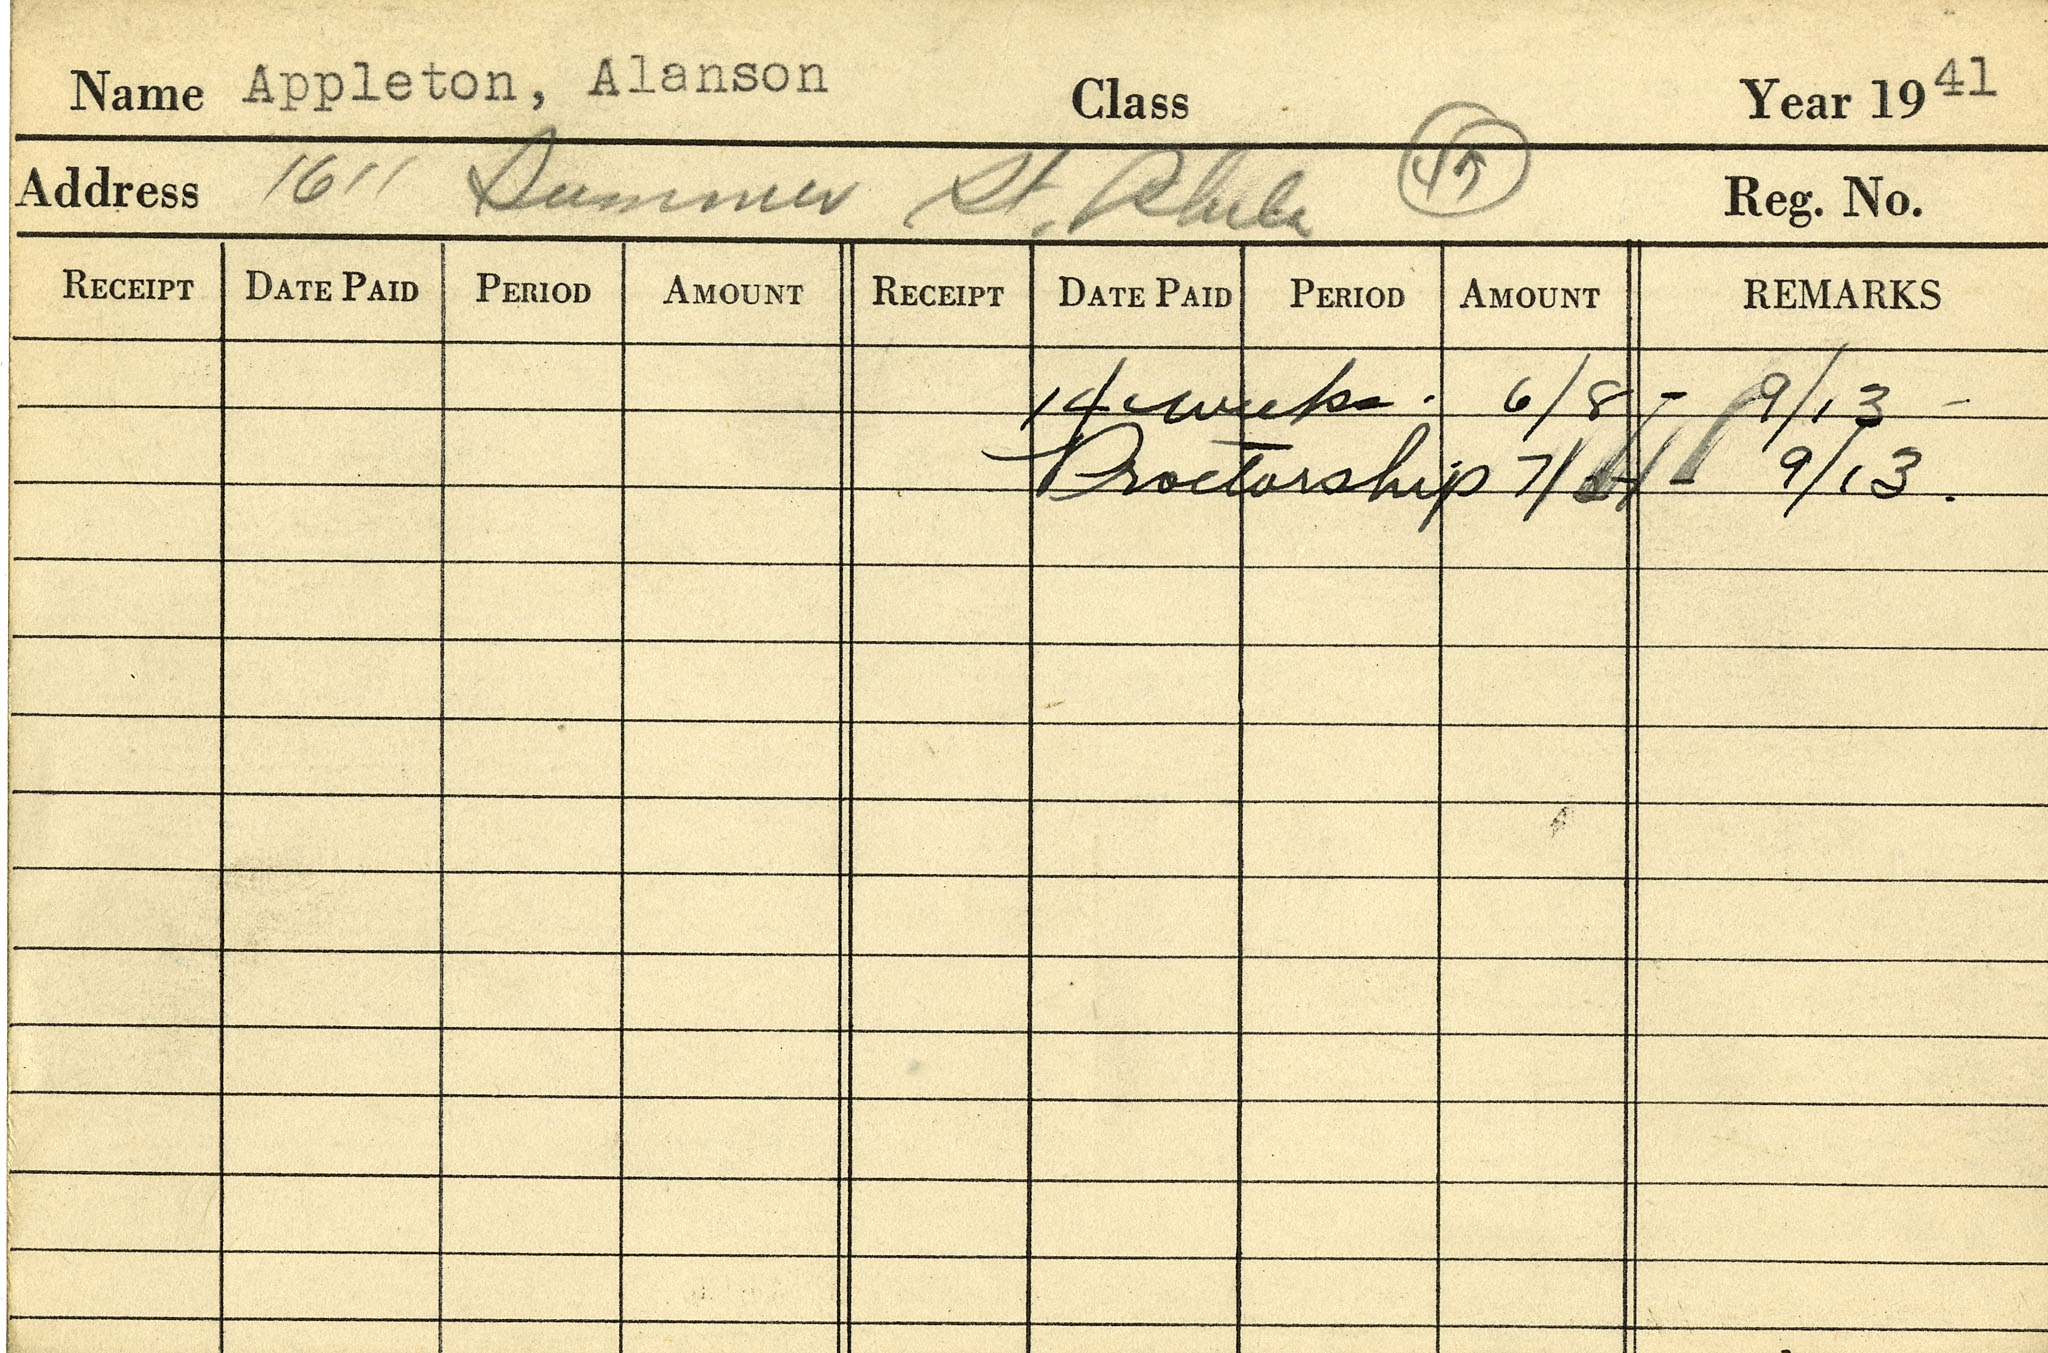 Name Appleton, Alanson Class Year 1941
Address 1611 Summer St. Phila Reg. No.
RECEIPT DATE PAID PERIOD AMOUNT RECEIPT DATE PAID PERIOD AMOUNT REMARKS
14 weeks. 6/8 - 9/13 -
Proctorship 7/ - 9/13.